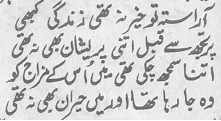 آراستہ تو خیر نہ تھی زندگی کبھی
پر تجھ سے قبل اتنی پریشان بھی نہ تھی
اتنا سمجھ چکی تھی میں اس کے مزاج کو
وہ جا رہا تھا اور میں حیران بھی نہ تھی